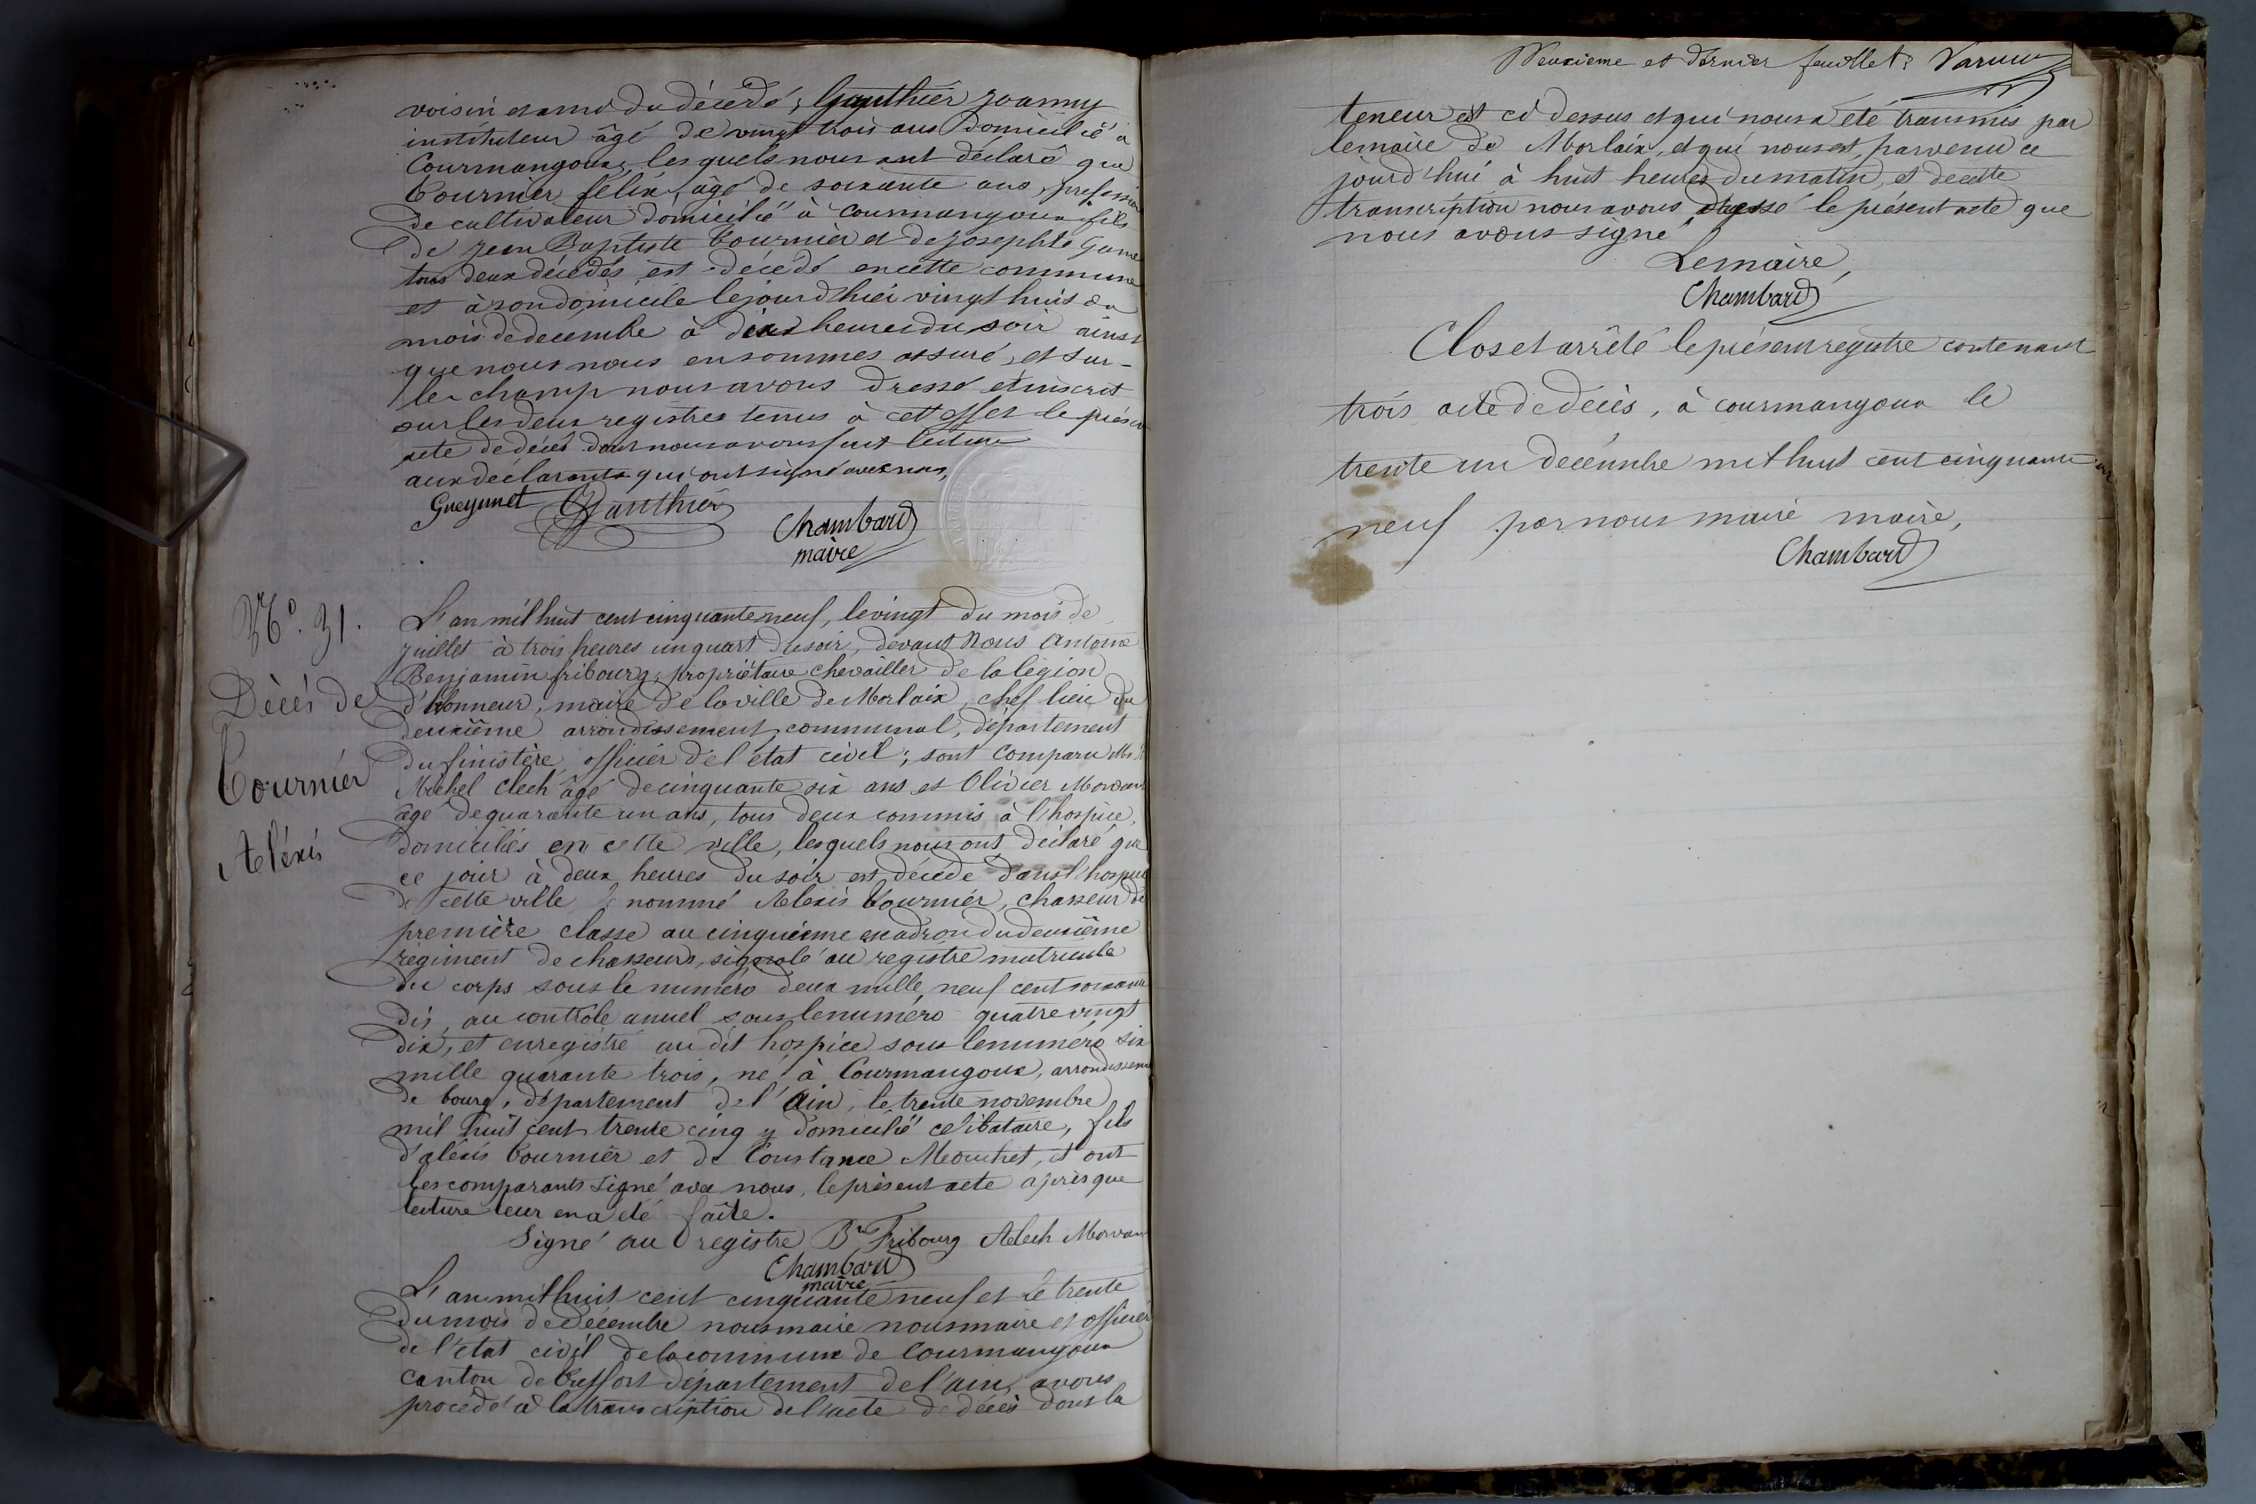 voisin et ami du décédé, Gauthier Joanny
instituteur âgé de vingt trois ans domicilié à
Courmangoux, lesquels nous ont déclaré que
Tournier félix, âgé de soixante ans, profession
de cultivateur domicilié à Courmangoux fils
de Jean Baptiste Tournier et de Josephte
tous deux décédés, est décédé en cette commune
et à son domicile le jour d'hiér vingt huit du
mois de decembre à dix heures du soir ainsi
que nous nous en sommes assuré, et sur-
le champ nous avons dressé et inscrit
sur les deux registres tenus à cet effet le présent
acte de décès dont nous avons fait lecture
aux déclarants qui ont signé avec nous,
Gueynnet Gauthier
Chambard
maire
N°. 31.
Décès de
Tournier
Aléxis
L'an mil huit cent cinquante neuf, le vingt du mois de
juillet à trois heures un quart du soir, devant Nous Antoine
Benjamin fribourg, propriétaire chevailler de la légion
d'honneur, maire de la ville de Morlaix, chef lieu du
deuxième arrondissement communal, département
du finistère, officiér de l'état civil; sont comparu
Michel Clech âgé de cinquante six ans et Olivier Morvan
âgé de quarante un ans, tous deux commis à l'hospice,
domiciliés en cette ville, lesquels nous ont déclaré que
ce jour à deux heures du soir est décédé dans l'hospice
de cette ville le nommé Alexis Tournier, chasseur de
première classe au cinquième escadron du deuxième
régiment de chasseurs, signalé au registre matricule
du corps sous le numéro deux mille, neuf cent soixante
dix, au contrôle annuel sous le numéro quatre vingt
dix, et enregistré au dit hospice sous le numéro six
mille quarante trois, né à Courmangoux, arrondissement
de bourg, département de l'Ain, le trente novembre
mil huit cent trente cinq y domicilié celibataire, fils
d'aléxis Tournier et de Constance Mouchet, et ont
les comparants signé avec nous, le présent acte après que
lecture leur en a été faite.
Signé au registre Bn Fribourg Clech Morvan
Chambard
maire
L'an mil huit cent cinquante neuf et le trente
du mois de décembre nous maire nous maire et officiér
de l'état civil de la commune de Courmangoux
canton de treffort département de l'ain, avons
procédé à la transcription de l'acte de décès dont la
Deuxième et dernier feuillet.
teneur est ci dessus et qui nous a été transmis par
le maire de Morlaix, et qui nous est parvenu ce
jourd'hui à huit heures du matin, et de cette
transcription nous avons dressé le présent acte que
nous avons signé
Le maire,
Chambard
Clos et arrêté le présent registre contenant
trois acte de décès, à courmangoux le
trente un decembre mil huit cent cinquante
neuf par nous maire maire,
Chambard